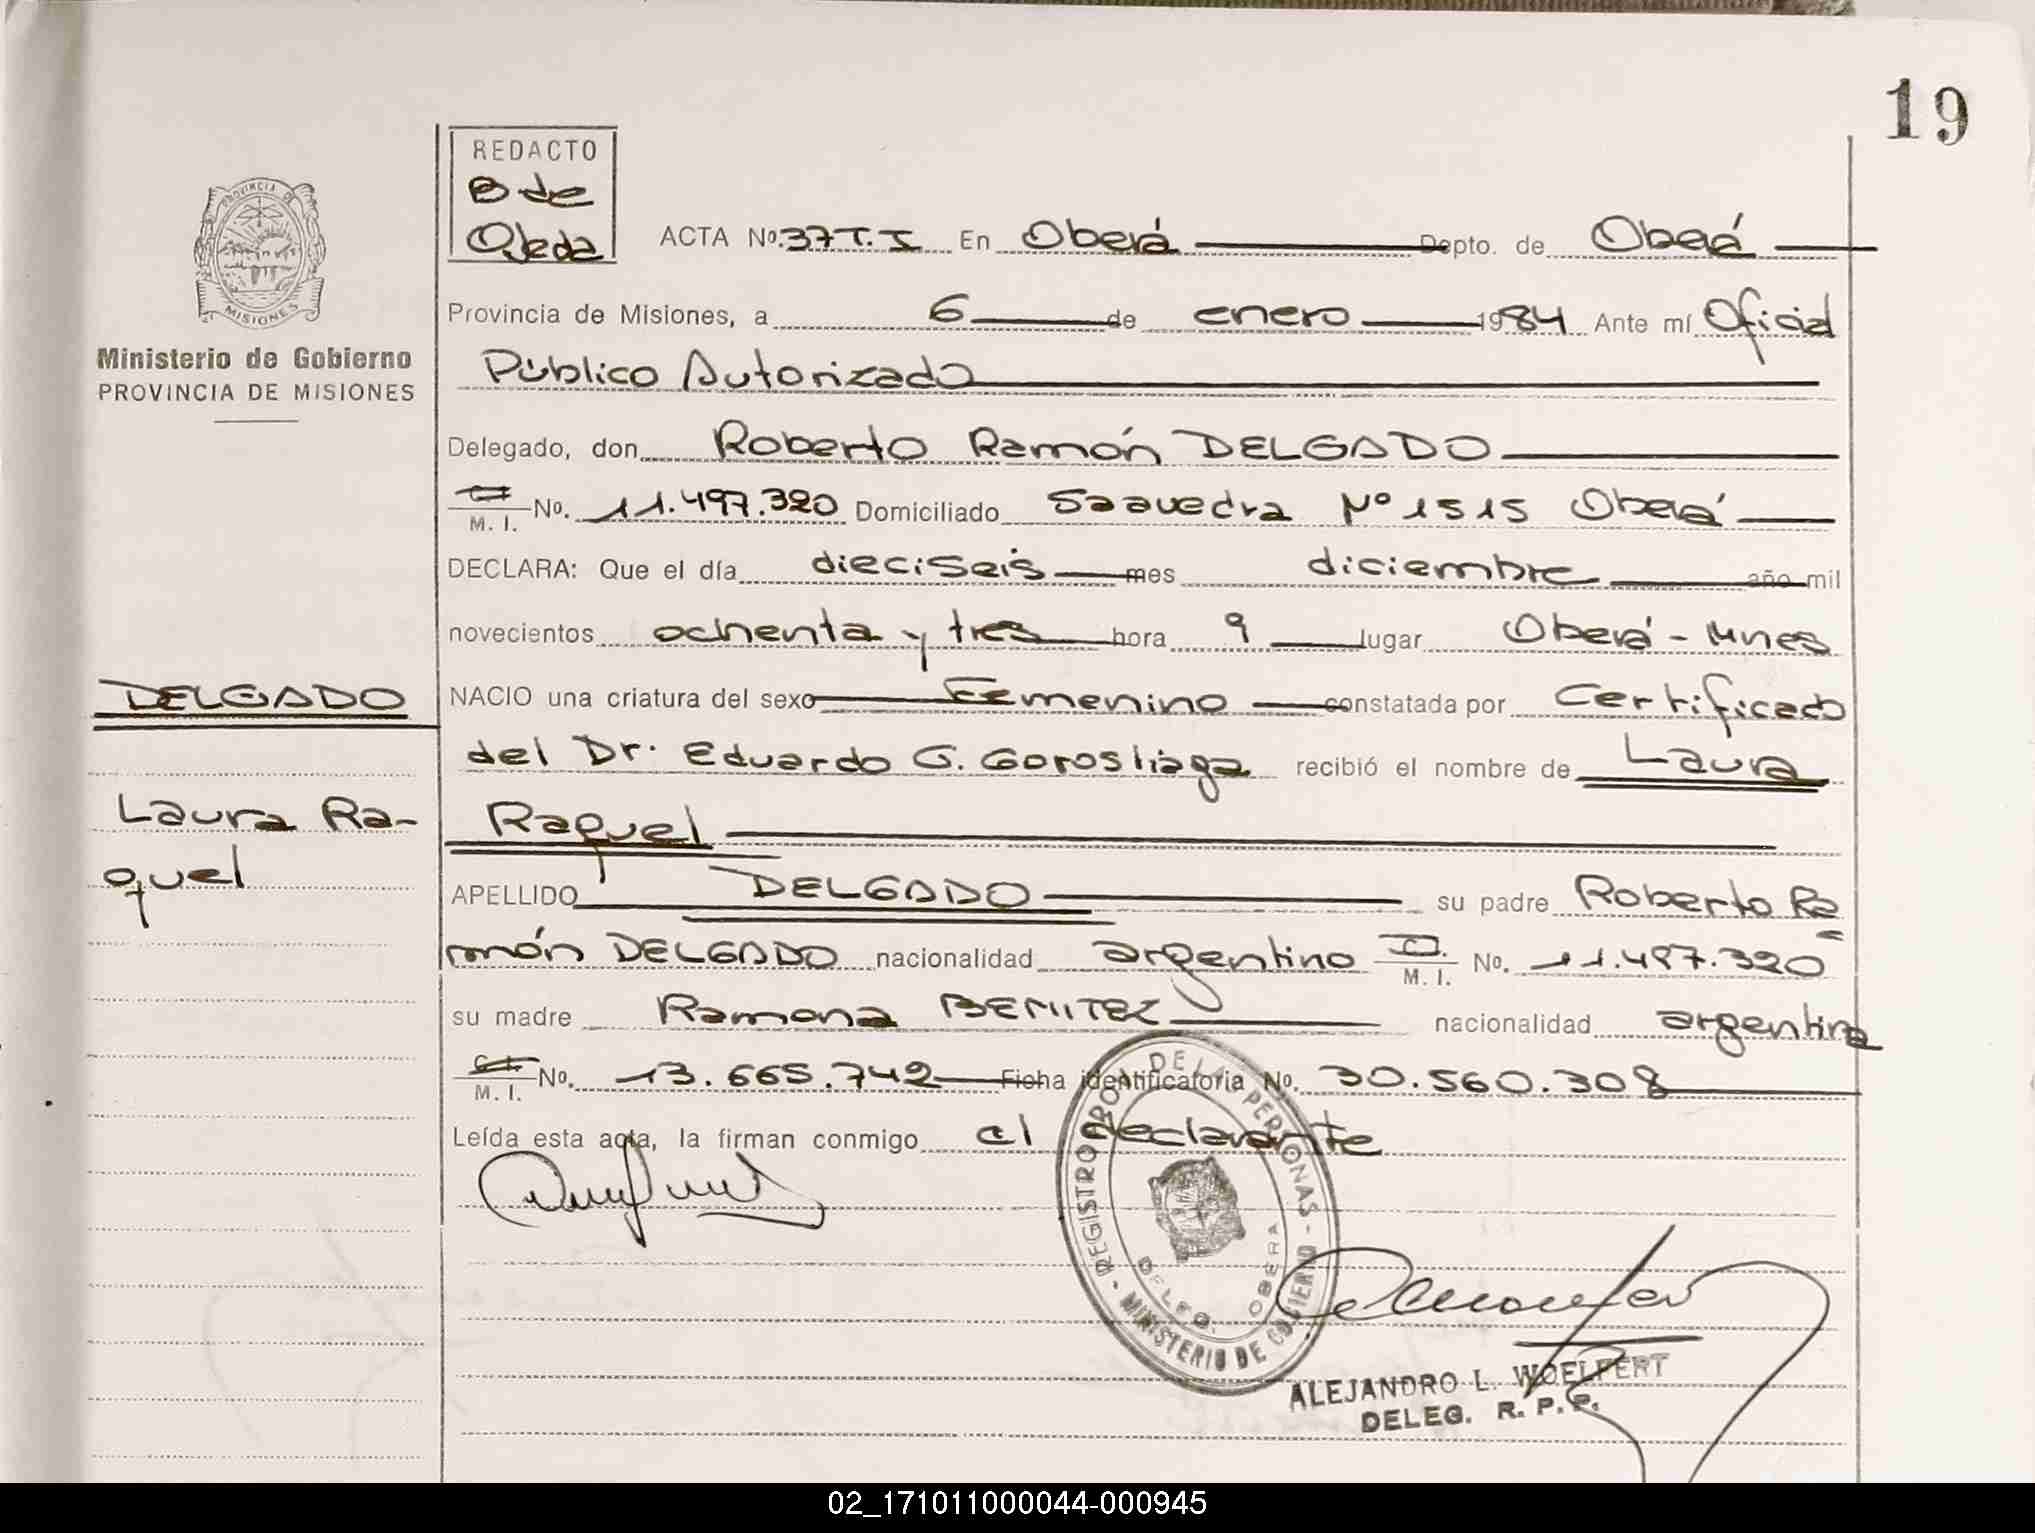 19
REDACTO
B de
Ojeda
PROVINCIA DE
MISIONES
Ministerio de Gobierno
PROVINCIA DE MISIONES
ACTA Nº 37 T. I En Oberá Depto. de Oberá
Provincia de Misiones, a 6 de enero 1984 Ante mí Oficial
Público Autorizado
Delegado, don Roberto Ramón DELGADO
M. I. No. 11.497.320 Domiciliado Saavedra Nº 1515 Oberá
DECLARA: Que el día dieciseis mes diciembre año mil
novecientos ochenta y tres hora 9 lugar Oberá - Mnes
DELGADO
NACIO una criatura del sexo Femenino constatada por Certificado
del Dr. Eduardo G. Gorosliaga recibió el nombre de Laura
Laura Ra-
quel
Raquel
APELLIDO DELGADO su padre Roberto Ra
món DELGADO nacionalidad argentino M. I. No. 11.497.320
su madre Ramona BENITEZ nacionalidad argentina
M. I. No. 13.665.742 Ficha identificatoria No. 30.560.308
Leída esta acta, la firman conmigo el declarante
REGISTRO PROV. DE LAS PERSONAS - MINISTERIO DE GOBIERNO -
DELEG. OBERA
ALEJANDRO L. WOELFERT
DELEG. R. P. P.
02_171011000044-000945